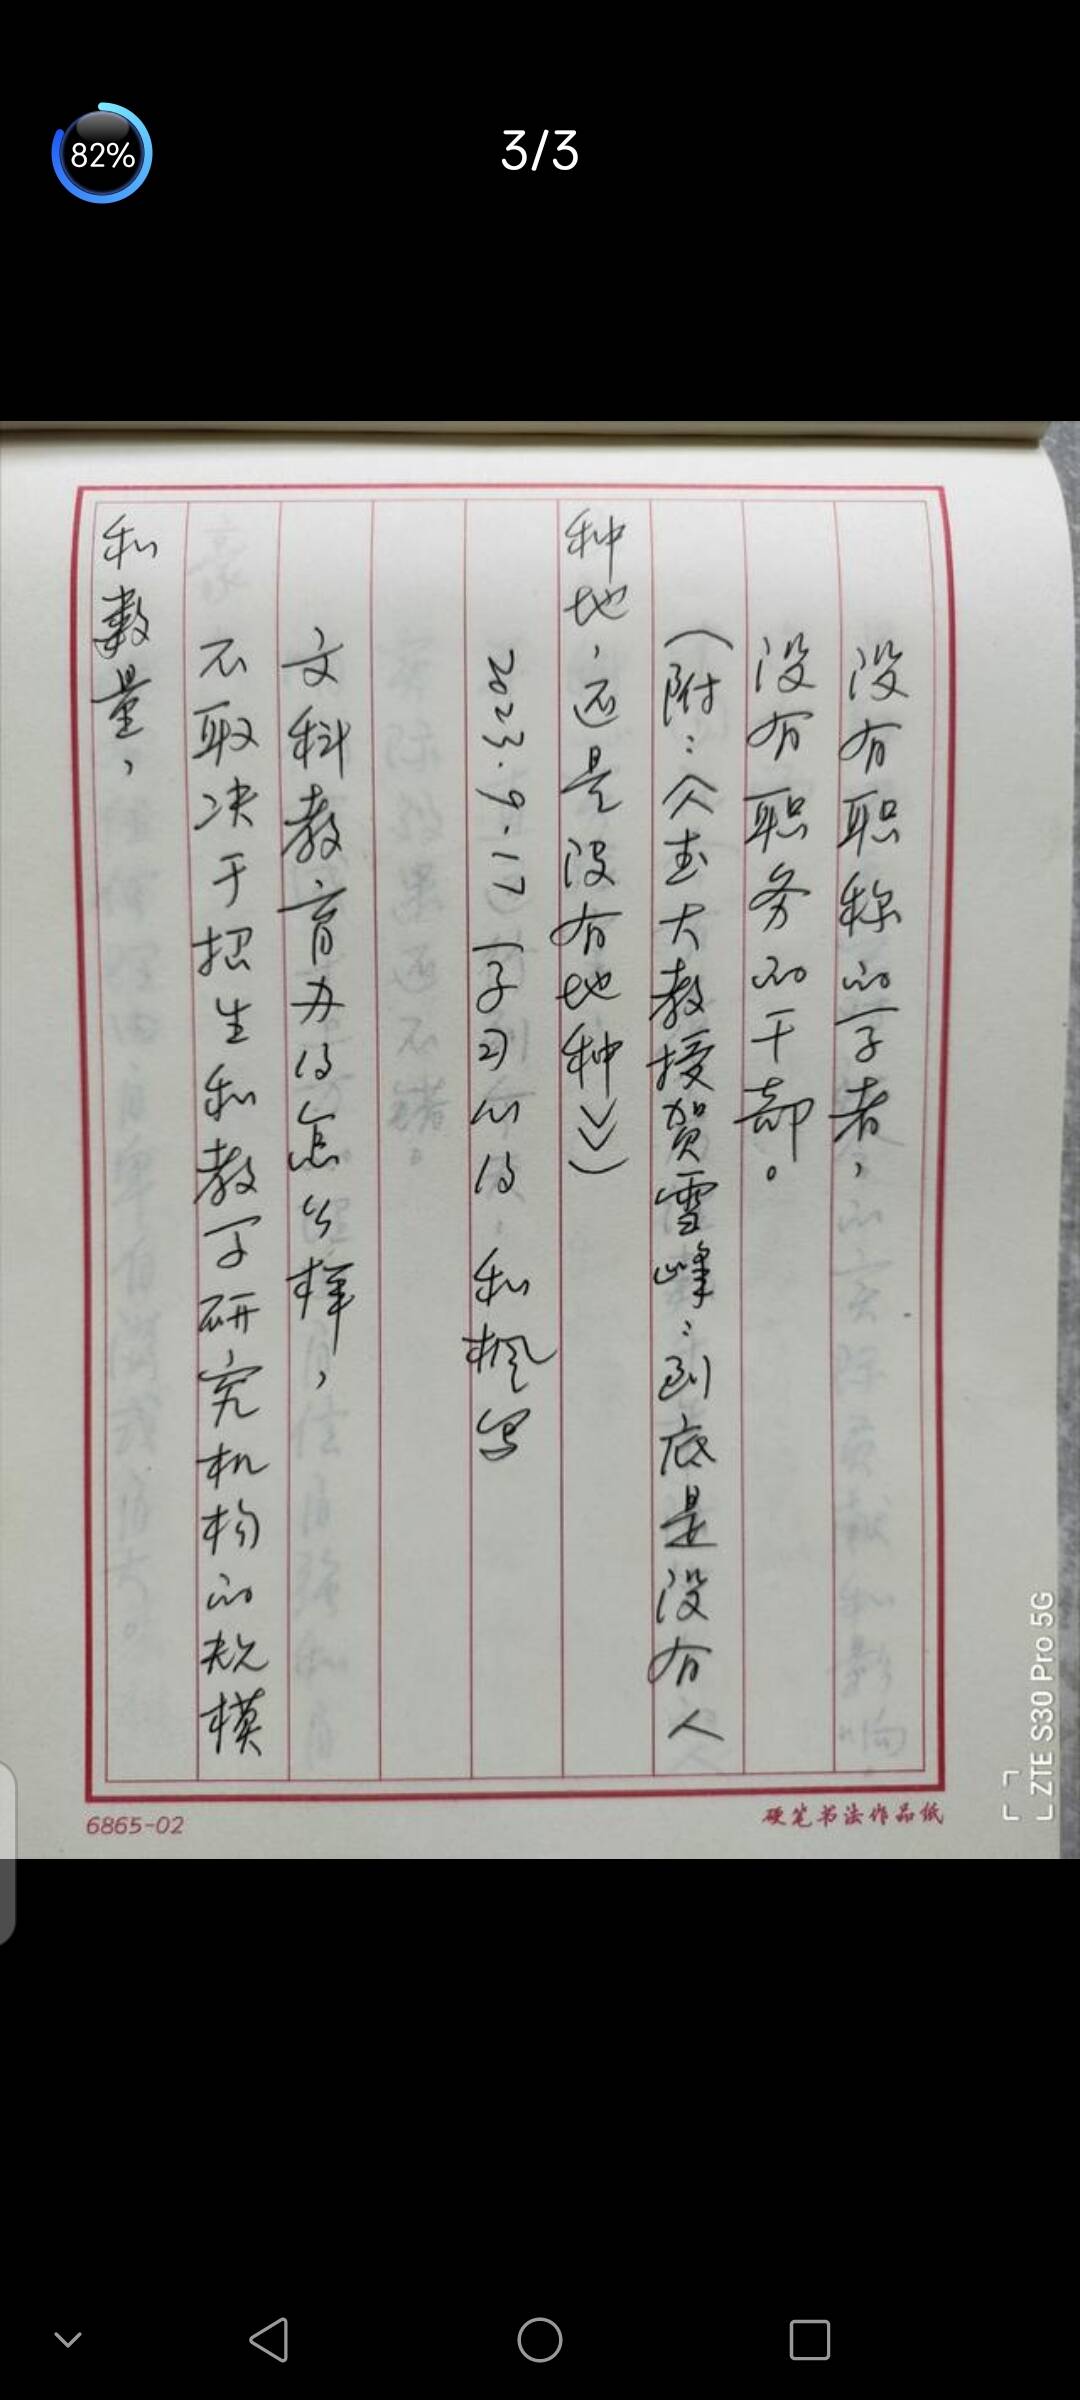 82%
3/3
没有职称的学者，
没有职务的干部。
（附：《武大教授贺雪峰：到底是没有人
种地，还是没有地种》）
2023.9.17 学习心得：和枫写
文科教育办得怎么样，
不取决于招生和教学研究机构的规模
和数量，
6865-02
硬笔书法作品纸
ZTE S30 Pro 5G